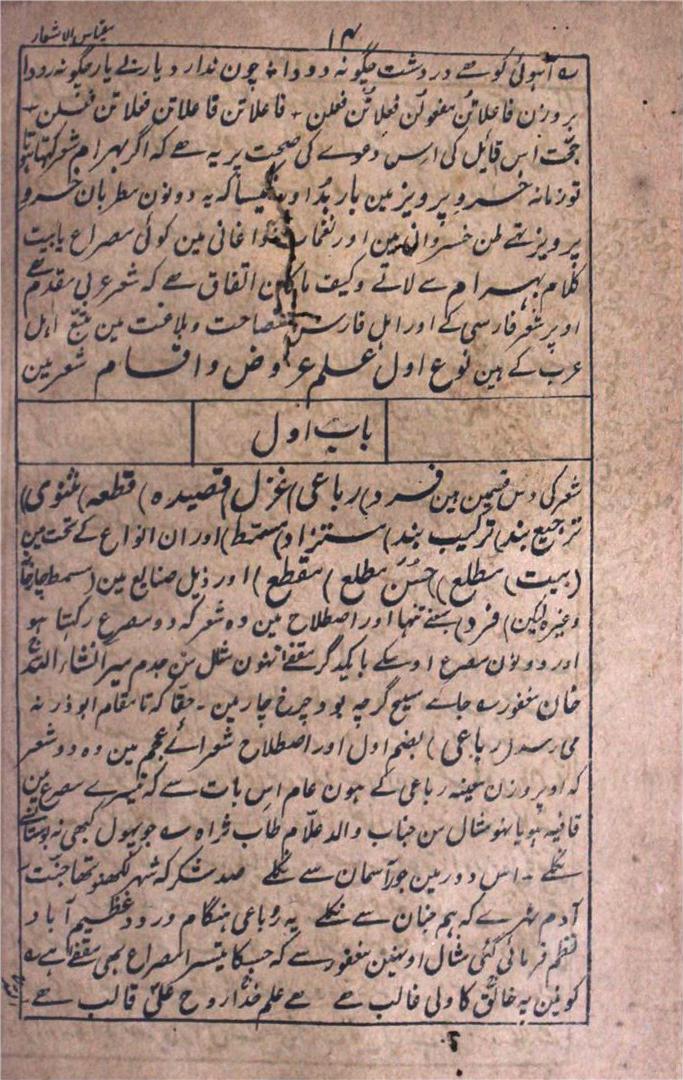 مقیاس الاشعار
۱۴
آہوئی کوہے در دشت چگونہ دودا ٭ چون ندارد یار بے یار چگونہ رودا
بر وزن فاعلاتن مفعولن فعلاتن فعلن + فاعلاتن فاعلاتن فعلاتن فعلن +
حجت اس قایل کی اس دعوے کی صحت پر یہ ہے کہ اگر بہرام شعر کہتا ہوتا
تو زمانہ خسرو پرویز مین باربد کہ یہ دونون مطربان خسرو
پرویز تہے لحن خسروانی مین اور نغمات اغانی مین کوئی مصراع یا بیت
کلام بہرام سے لاتے وکیف ماکان اتفاق ہے کہ شعر عربی مقدم ہے
اوپر شعر فارسی کے اور اہل فارس فصاحت و بلاغت مین متبع اہل
عرب کے ہین نوع اول علم عروض و اقسام شعر مین
باب اول
شعر کی دس قسمین ہین فرد) رباعی) غزل) قصیدہ) قطعہ) مثنوی)
ترجیع بند) ترکیب بند) مستزاد) مسمط) اور ان انواع کے تحت مین
(بیت) مطلع) حسن مطلع) مقطع) اور ذیل صنایع مین (مسمط چارخانہ
وغیرہ لیکن) فرد) بمعنے تنہا اور اصطلاح مین وہ شعر کہ دو مصرع رکہتا ہو
اور دونون مصرع اوسکے بایکدگر مقفے نہون مثل سن جدم میر انشاء اللہ
خان مغفور ے جاے مسیح گرچہ بود چرخ چارمین ۔ حقا کہ تا مقام ابوذر نہ
می رسد (رباعی) بضم اول اور اصطلاح شعرائے عجم مین وہ دو شعر
کہ اوپر وزن معینہ رباعی کے ہون عام اس بات سے کہ تیسرے مصرع مین
قافیہ ہو یا نہو مثال سن جناب والد علام طاب ثراہ ے جو پہول کبھی نہ بوستان سے
نکلے ۔ اس دور مین جور آسمان سے نکلے صد شکر کہ شہر لکھنؤ تہا جنت
آدم ٹہرے کہ ہم جنان سے نکلے یہ رباعی ہنگام ورود عظیم آباد
نظم فرمائی گئی مثال اوہنین مغفور سے کہ جسکا تیسرا مصراع بھی مقفے ہے ے
کونین پہ خالق کا ولی غالب ہے ہے علم خدا روح علی قالب ہے ۔